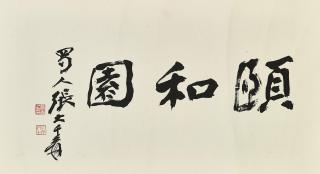 頤和園
蜀人張大千爰